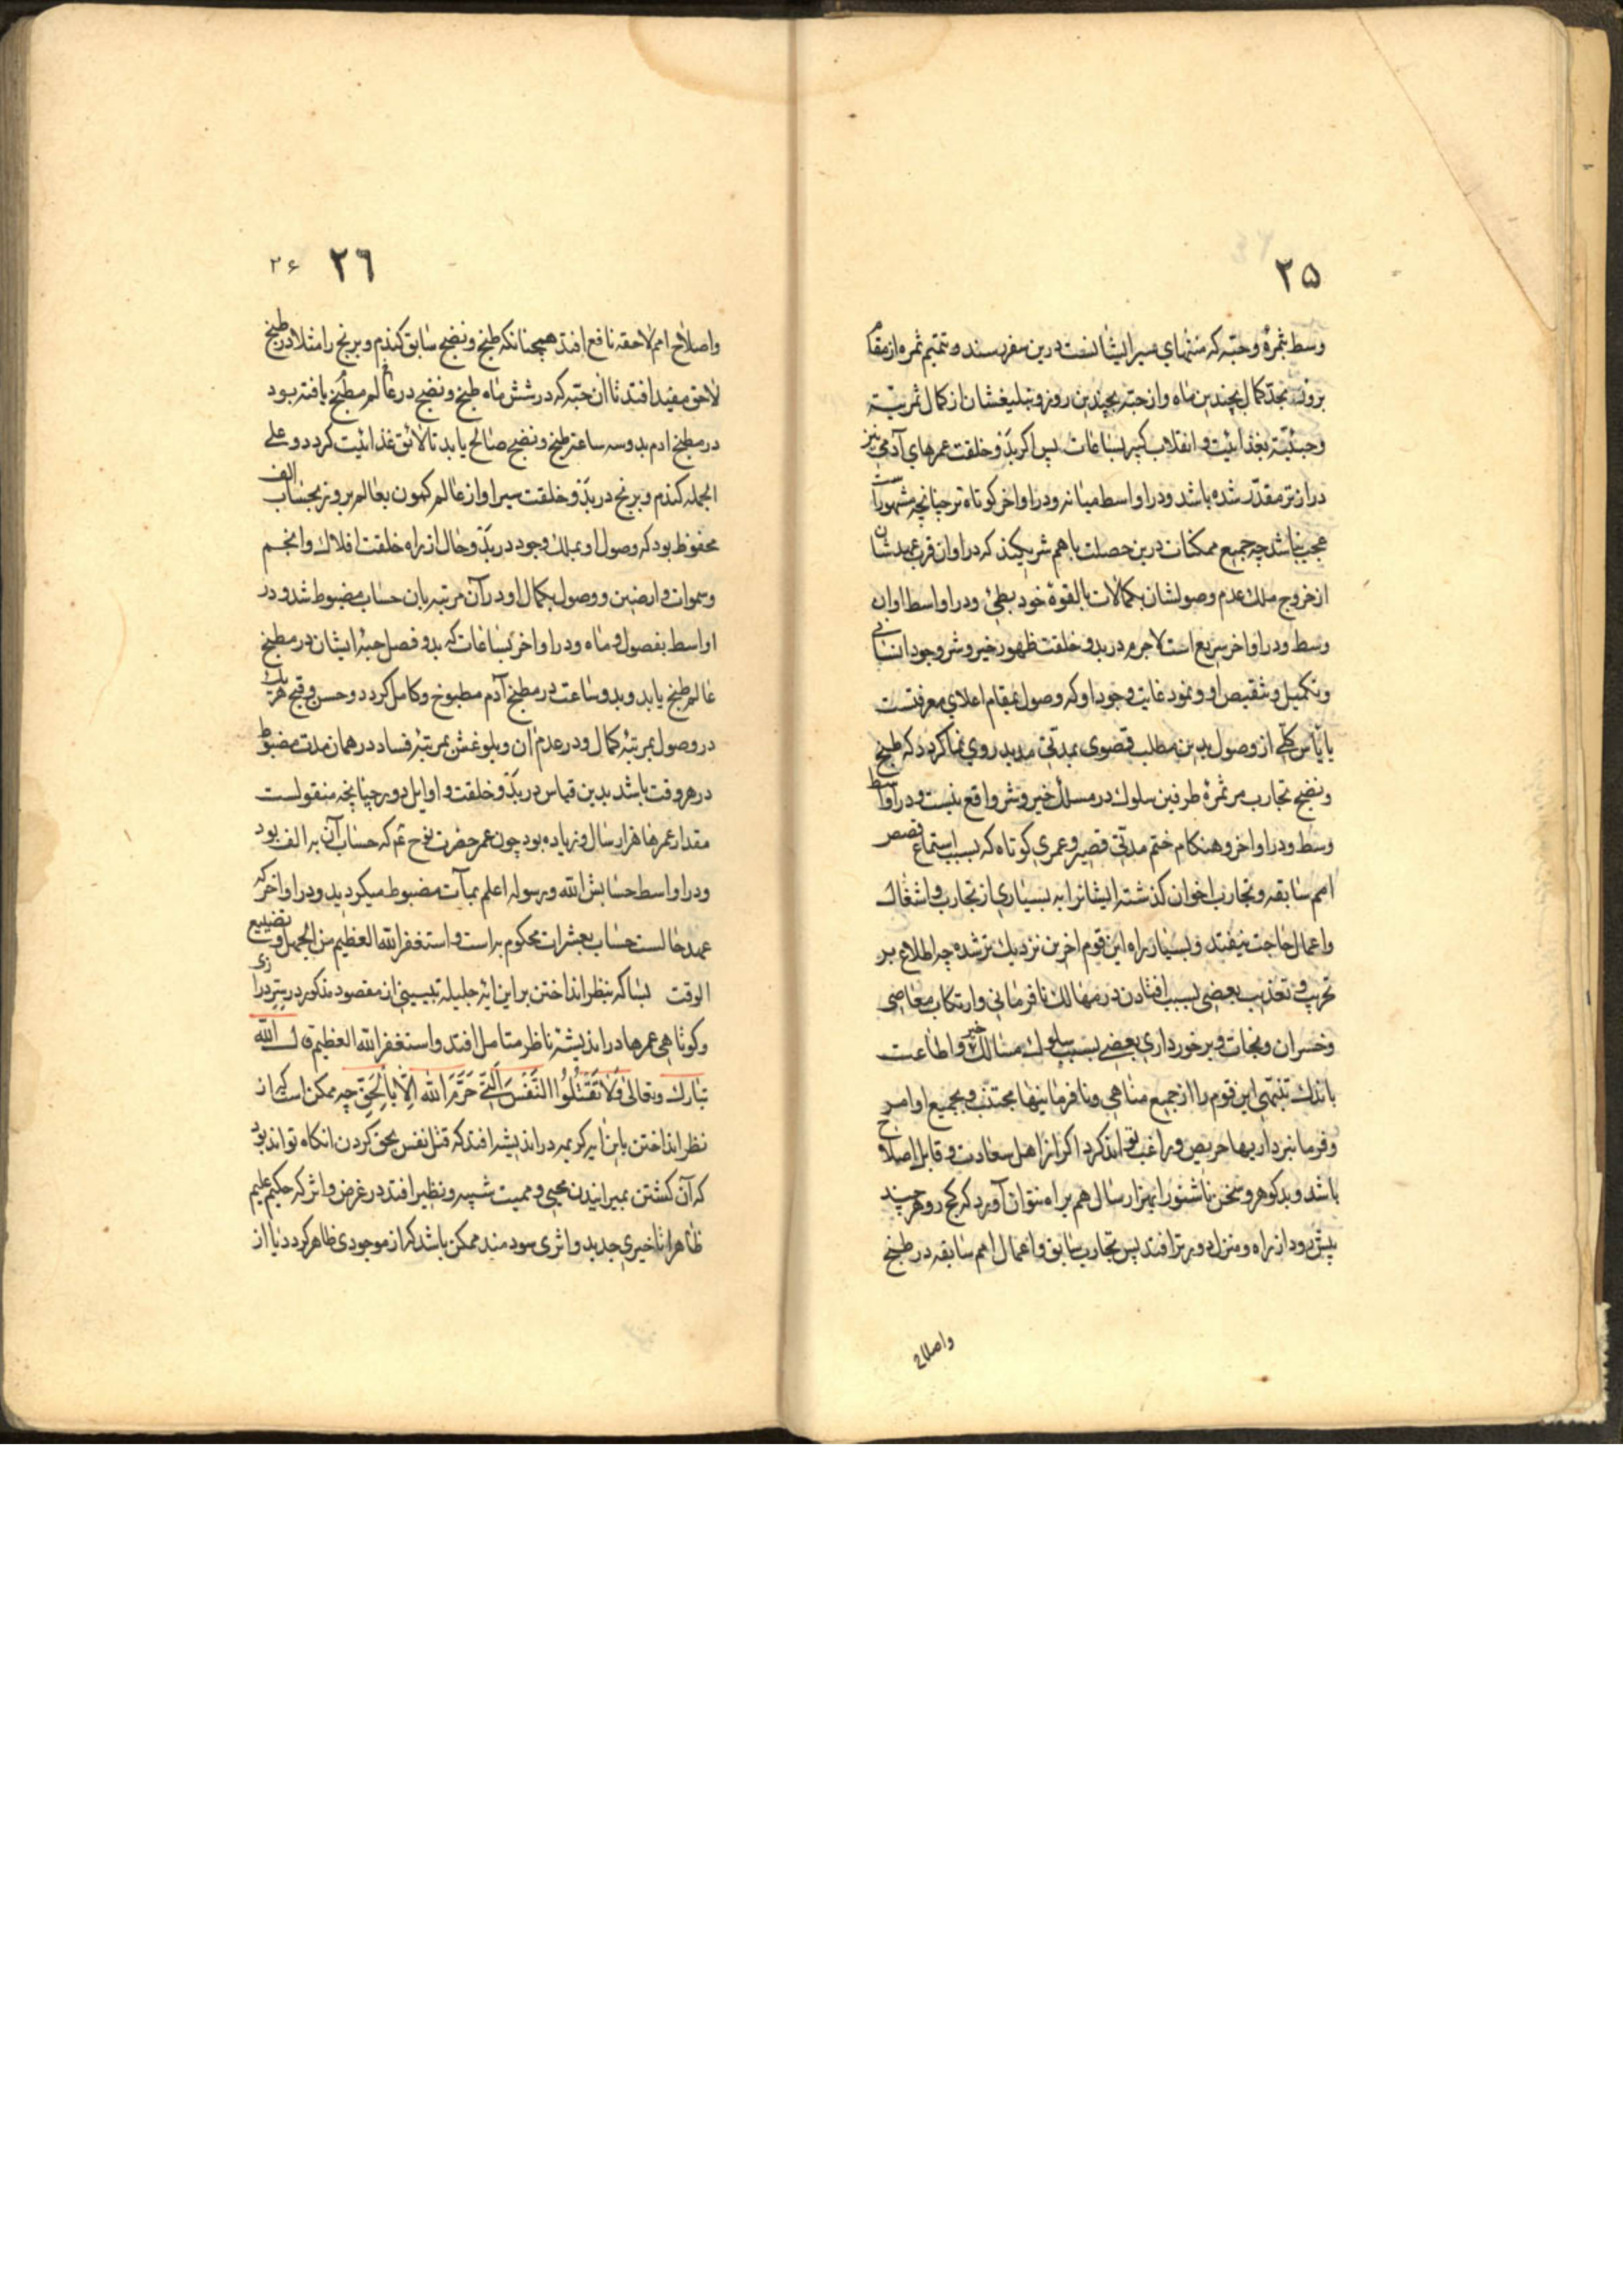 ۲۵
وسط ثمره و حبّه که منتهای سیر ایشانست درین سفر رسند و تتمیم ثمره از مقام
بروز بحدّ کمال بچندین ماه و از حبّه بچندین روز و تبلیغشان از کمال ثمریّة
و حبّیّة بغذائیت و انقلاب کیر بساعات پس اگر بدؤ خلقت عمرهای آدمی نیز
دراز تر مقدّر شده باشد و در اواسط میانه و در اواخر کوتاه تر چنانچه مشهور است
عجب نباشد چه جمیع ممکنات درین خصلت باهم شریکند که در اوان قرب عهدشان
از خروج ملک عدم وصولشان بکمالات بالقوهٔ خود بطیٔ و در اواسط اوان
وسط و در اواخر سریع است لاجرم در بدو خلقت ظهور خیر و شر وجود انسانی
و تکمیل و تنقیص او و نمود غایت وجود او که وصول بمقام اعلای معرفتست
یا یأس کلّی از وصول بدین مطلب قصوی بمدتی مدید روی نما کردد که طبخ
و نضج تجارب مر ثمرهٔ طرفین سلوک در مسلک خیر و شر واقع نیست و در اواسط
وسط و در اواخر و هنکام ختم مدتی قصیر و عمری کوتاه که بسبب استماع قصص
امم سابقه و تجارب اخوان کذشته ایشانرا به بسیاری از تجارب و اشغال
و اعمال حاجت نیفتد و بسیار براه این قوم اخرین نزدیک تر شده چه اطلاع بر
تخریب و تعذیب بعضی بسبب افتادن در مهالک نافرمانی و ارتکاب معاصی
و خسران و نجات و برخورداری بعضی بسبب سلوک مسالک خیر و اطاعت
باندک تنبّهی این قوم را از جمیع مناهی و نافرمانیها مجتنب و بجمیع اوامر
و فرمانبرداریها حریص و راغب تواند کرد اکر از اهل سعادت و قابل اصلاح
باشد و بدکوهر و سخن ناشنو را بهزار سال هم براه نتوان آورد که کج رو هر چند
پیش رود از راه و منزل دورتر افتد پس تجارب سابق و اعمال امم سابقه در طبخ
واصلاح
۲۶ ۲۶
و اصلاح امم لاحقه نافع افتد همچنانکه طبخ و نضج سابق کندم و برنج را مثلا در طبخ
لاحق مفید افتد تا ان حبّه که در شش ماه طبخ و نضج در عالم مطبخ یافته بود
در مطبخ ادم بدو سه ساعت طبخ و نضج صالح یابد تا لائق غذائیت کردد و علی
الجمله کندم و برنج در بدؤ خلقت سیر او از عالم کمون بعالم بروز بحساب الف
محفوظ بود که وصول او بملک وجود در بدؤ حال از راه خلقت افلاک و انجم
و سموات و ارضین و وصول بکمال او در آن مرتبه بان حساب مضبوط شد و در
اواسط بفصول و ماه و در اواخر بساعات که بدو فصل حبهٔ ایشان در مطبخ
عالم طبخ یابد و بدو ساعت در مطبخ آدم مطبوخ و کامل کردد و حسن و قبح هر یک
در وصول بمرتبهٔ کمال و در عدم ان و بلوغش بمرتبهٔ فساد در همان مدت مضبوط
در هر وقت باشد بدین قیاس در بدؤ خلقت و اوایل دور چنانچه منقولست
مقدار عمرها هزار سال و زیاده بود چون عمر حضرت نوح ع م که حساب آن به الف بود
و در اواسط حسابش الله و رسوله اعلم بمآت مضبوط میکردید و در اواخر که
عهد حالست حساب بعشرات محکوم به است و استغفر الله العظیم من الجهل و تضییع
الوقت بسا که بنظر انداختن بر این ایهٔ جلیله تبیینی از مقصود مذکور در سِرّ درازی
و کوتاهی عمرها در اندیشهٔ ناظر متامل افتد و استغفر الله العظیم قال الله
تبارک و تعالی وَلَا تَقْتُلُوا النَّفْسَ الَّتِی حَرَّمَ اللهُ اِلَّا بِالْحَقِّ چه ممکن است که از
نظر انداختن باین ایه کریمه در اندیشه افتد که قتل نفس بحق کردن انکاه تواند بود
که آن کشتن بمیرانیدن محیی و ممیت شبیه و نظیر افتد در غرض و اثر که حکیم علیم
ظاهرا تا خیری جدید و اثری سودمند ممکن باشد که از موجودی ظاهر کردد تا از